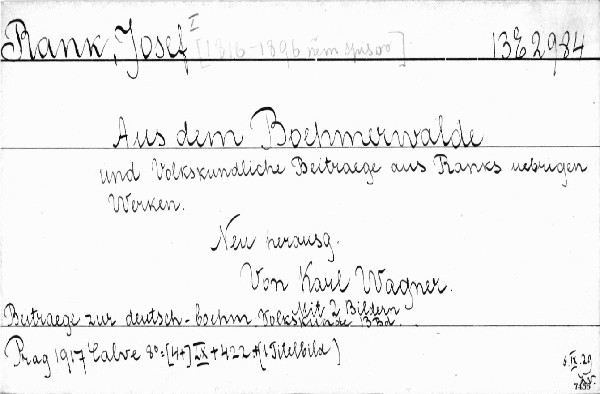 Rank, Josef I [1816-1896 něm spisov] 13E2984
Aus dem Boehmerwalde
und Volkskundliche Beitraege aus Ranks uebrigen
Werken.
Neu herausg.
Von Karl Wagner.
Mit 2 Bildern
Beitraege zur deutsch-boehm Volkskunde 13Bd
Prag 1917 Calve 8°=[4+] + 422 + (1 Titelbild)
5.IX.29